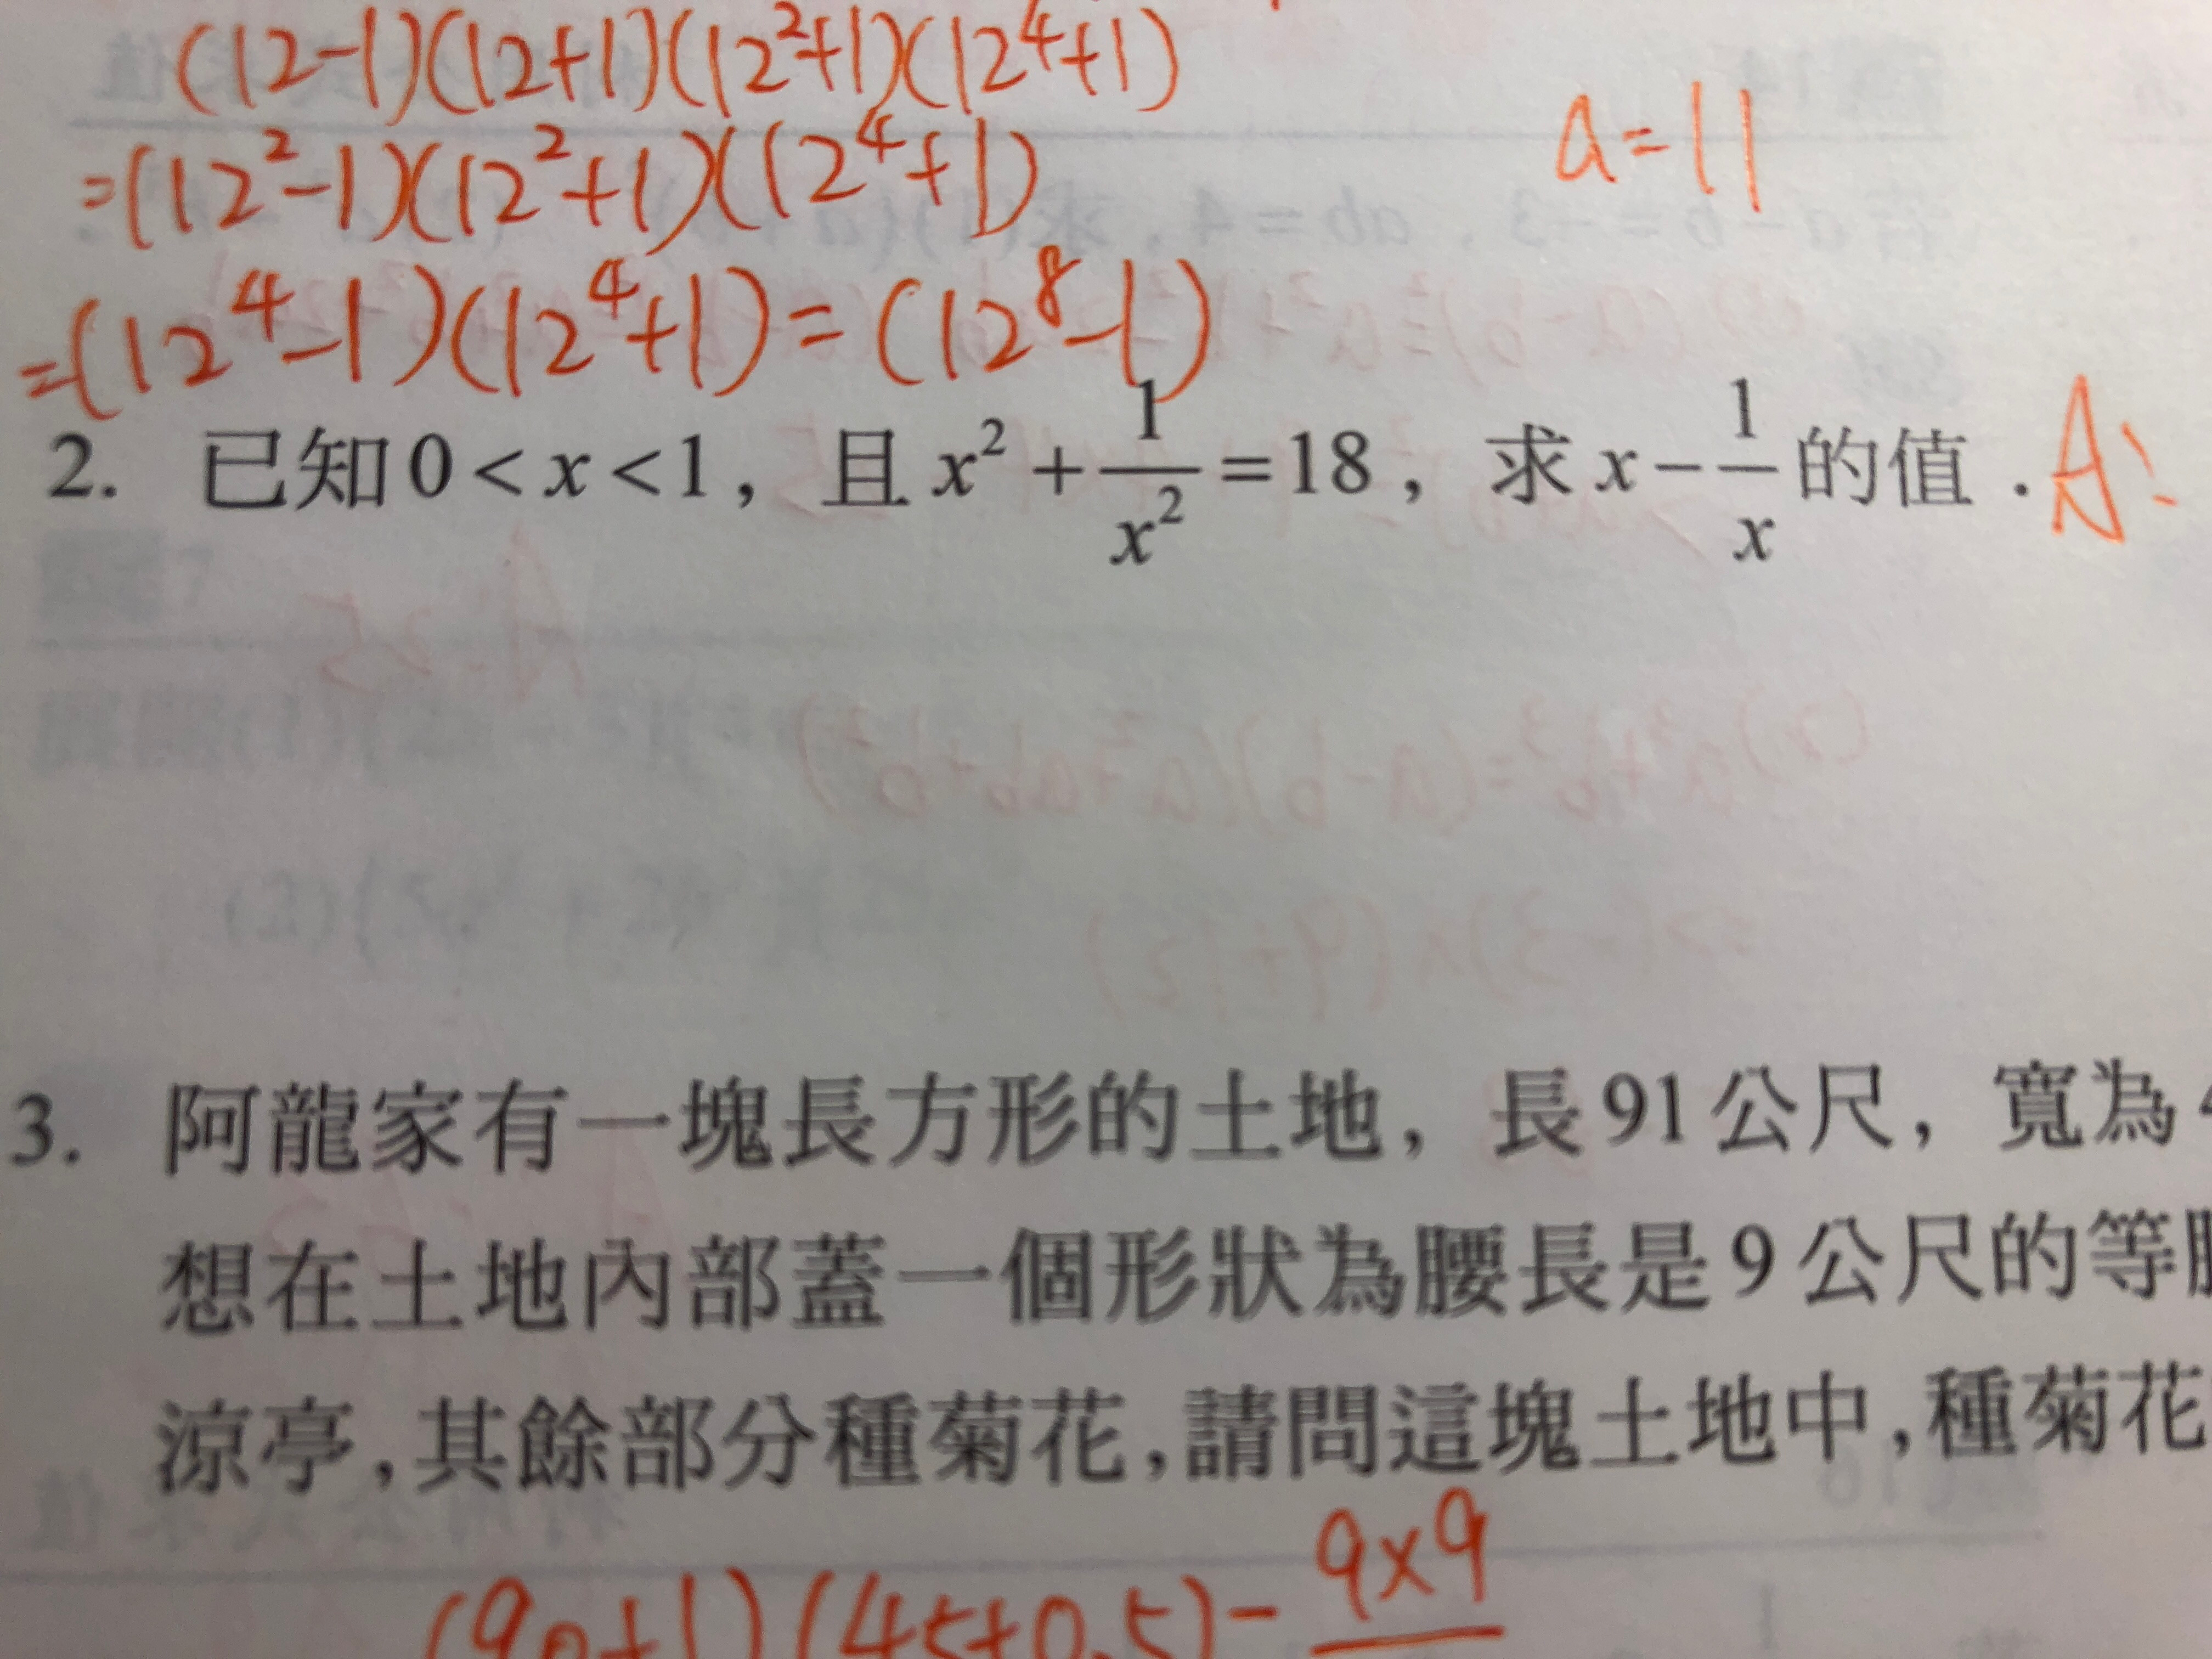 (12-1)(12+1)(12²+1)(12⁴+1)
a=11
=(12²-1)(12²+1)(12⁴+1)
=(12⁴-1)(12⁴+1)=(12⁸-1)
2. 已知0<x<1，且x²+1/x²=18，求x-1/x的值. A:
3. 阿龍家有一塊長方形的土地，長91公尺，寬為
想在土地內部蓋一個形狀為腰長是9公尺的等
涼亭，其餘部分種菊花，請問這塊土地中，種菊花
(90+1)(45+0.5)-9×9